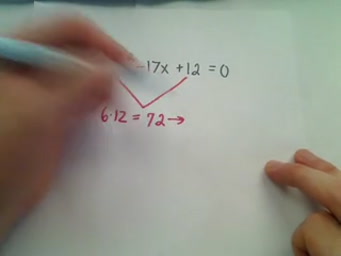 -17x + 12 = 0
6·12 = 72 →